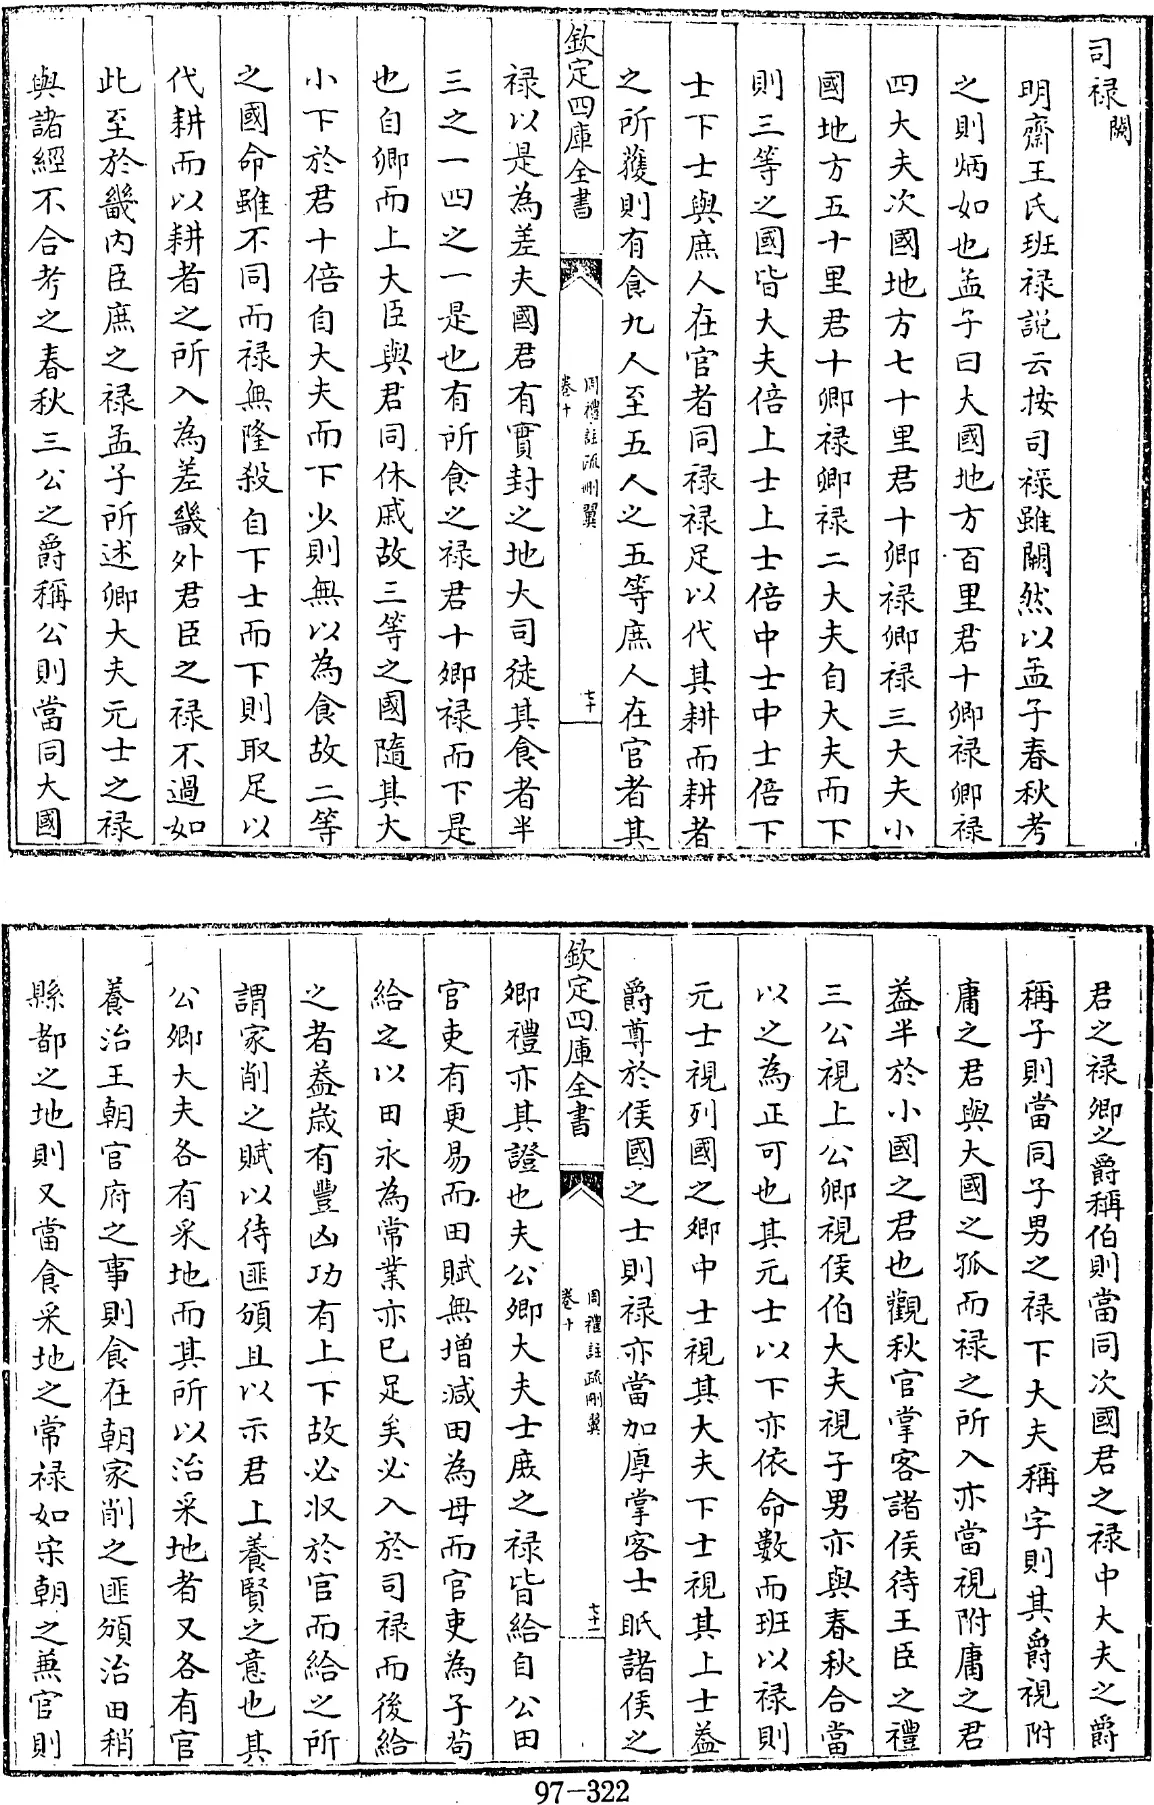 司禄闕
明齋王氏班禄説云按司禄雖闕然以孟子春秋考
之則炳如也孟子曰大國地方百里君十卿禄卿禄
四大夫次國地方七十里君十卿禄卿禄三大夫小
國地方五十里君十卿禄卿禄二大夫自大夫而下
則三等之國皆大夫倍上士上士倍中士中士倍下
士下士與庶人在官者同禄禄足以代其耕而耕者
之所獲則有食九人至五人之五等庶人在官者其
欽定四庫全書
周禮註疏刪翼
卷十
七十
禄以是為差夫國君有實封之地大司徒其食者半
三之一四之一是也有所食之禄君十卿禄而下是
也自卿而上大臣與君同休戚故三等之國隨其大
小下於君十倍自大夫而下少則無以為食故二等
之國命雖不同而禄無隆殺自下士而下則取足以
代耕而以耕者之所入為差畿外君臣之禄不過如
此至於畿内臣庶之禄孟子所述卿大夫元士之禄
與諸經不合考之春秋三公之爵稱公則當同大國
君之禄卿之爵稱伯則當同次國君之禄中大夫之爵
稱子則當同子男之禄下大夫稱字則其爵視附
庸之君與大國之孤而禄之所入亦當視附庸之君
葢半於小國之君也觀秋官掌客諸侯待王臣之禮
三公視上公卿視侯伯大夫視子男亦與春秋合當
以之為正可也其元士以下亦依命數而班以禄則
元士視列國之卿中士視其大夫下士視其上士葢
爵尊於侯國之士則禄亦當加厚掌客士眂諸侯之
欽定四庫全書
周禮註疏刪翼
卷十
七十一
卿禮亦其證也夫公卿大夫士庶之禄皆給自公田
官吏有更易而田賦無増減田為母而官吏為子茍
給之以田永為常業亦已足矣必入於司禄而後給
之者葢歲有豐凶功有上下故必収於官而給之所
謂家削之賦以待匪頒且以示君上養賢之意也其
公卿大夫各有采地而其所以治采地者又各有官
養治王朝官府之事則食在朝家削之匪頒治田稍
縣都之地則又當食采地之常禄如宋朝之兼官則
97-322